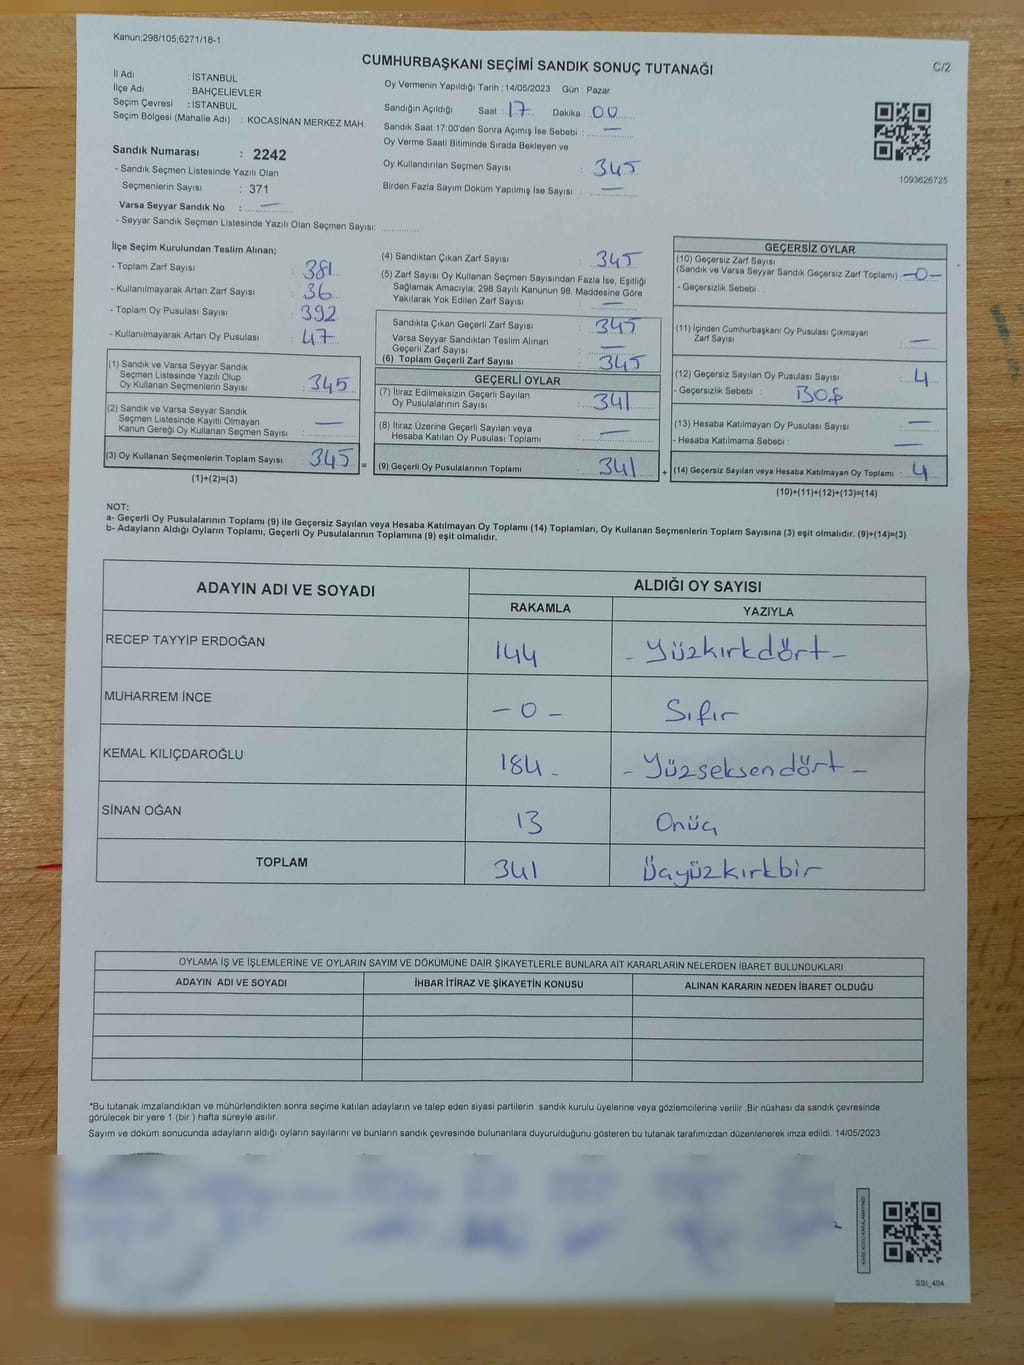 Kanun;298/105;6271/18-1
CUMHURBAŞKANI SEÇİMİ SANDIK SONUÇ TUTANAĞI
C/2
İl Adı : İSTANBUL
İlçe Adı : BAHÇELİEVLER
Seçim Çevresi : İSTANBUL
Seçim Bölgesi (Mahalle Adı) : KOCASİNAN MERKEZ MAH.
Sandık Numarası : 2242
- Sandık Seçmen Listesinde Yazılı Olan
Seçmenlerin Sayısı : 371
Varsa Seyyar Sandık No : —
- Seyyar Sandık Seçmen Listesinde Yazılı Olan Seçmen Sayısı:
Oy Vermenin Yapıldığı Tarih : 14/05/2023 Gün : Pazar
Sandığın Açıldığı Saat : 17 Dakika : 00
Sandık Saat 17:00'den Sonra Açımış İse Sebebi : —
Oy Verme Saati Bitiminde Sırada Bekleyen ve
Oy Kullandırılan Seçmen Sayısı : 345
Birden Fazla Sayım Döküm Yapılmış İse Sayısı : —
1093626725
İlçe Seçim Kurulundan Teslim Alınan;
- Toplam Zarf Sayısı : 381
- Kullanılmayarak Artan Zarf Sayısı : 36
- Toplam Oy Pusulası Sayısı : 392
- Kullanılmayarak Artan Oy Pusulası : 47
(1) Sandık ve Varsa Seyyar Sandık
Seçmen Listesinde Yazılı Olup
Oy Kullanan Seçmenlerin Sayısı : 345
(2) Sandık ve Varsa Seyyar Sandık
Seçmen Listesinde Kayıtlı Olmayan
Kanun Gereği Oy Kullanan Seçmen Sayısı : —
(3) Oy Kullanan Seçmenlerin Toplam Sayısı : 345
(1)+(2)=(3)
(4) Sandıktan Çıkan Zarf Sayısı : 345
(5) Zarf Sayısı Oy Kullanan Seçmen Sayısından Fazla İse, Eşitliği
Sağlamak Amacıyla; 298 Sayılı Kanunun 98. Maddesine Göre
Yakılarak Yok Edilen Zarf Sayısı : —
Sandıkta Çıkan Geçerli Zarf Sayısı : 345
Varsa Seyyar Sandıktan Teslim Alınan
Geçerli Zarf Sayısı : —
(6) Toplam Geçerli Zarf Sayısı : 345
GEÇERLİ OYLAR
(7) İtiraz Edilmeksizin Geçerli Sayılan
Oy Pusulalarının Sayısı : 341
(8) İtiraz Üzerine Geçerli Sayılan veya
Hesaba Katılan Oy Pusulası Toplamı : —
= (9) Geçerli Oy Pusulalarının Toplamı : 341
GEÇERSİZ OYLAR
(10) Geçersiz Zarf Sayısı
(Sandık ve Varsa Seyyar Sandık Geçersiz Zarf Toplamı) : —0—
- Geçersizlik Sebebi :
(11) İçinden Cumhurbaşkanı Oy Pusulası Çıkmayan
Zarf Sayısı : —
(12) Geçersiz Sayılan Oy Pusulası Sayısı : 4
- Geçersizlik Sebebi : BOŞ
(13) Hesaba Katılmayan Oy Pusulası Sayısı : —
- Hesaba Katılmama Sebebi : —
+ (14) Geçersiz Sayılan veya Hesaba Katılmayan Oy Toplamı : 4
(10)+(11)+(12)+(13)=(14)
NOT:
a- Geçerli Oy Pusulalarının Toplamı (9) ile Geçersiz Sayılan veya Hesaba Katılmayan Oy Toplamı (14) Toplamları, Oy Kullanan Seçmenlerin Toplam Sayısına (3) eşit olmalıdır. (9)+(14)=(3)
b- Adayların Aldığı Oyların Toplamı, Geçerli Oy Pusulalarının Toplamına (9) eşit olmalıdır.
ADAYIN ADI VE SOYADI
ALDIĞI OY SAYISI
RAKAMLA
YAZIYLA
RECEP TAYYİP ERDOĞAN 144 - Yüzkırkdört -
MUHARREM İNCE - 0 - Sıfır
KEMAL KILIÇDAROĞLU 184 - - Yüzseksendört -
SİNAN OĞAN 13 Onüç
TOPLAM 341 Üçyüzkırkbir
OYLAMA İŞ VE İŞLEMLERİNE VE OYLARIN SAYIM VE DÖKÜMÜNE DAİR ŞİKAYETLERLE BUNLARA AİT KARARLARIN NELERDEN İBARET BULUNDUKLARI
ADAYIN ADI VE SOYADI
İHBAR İTİRAZ VE ŞİKAYETİN KONUSU
ALINAN KARARIN NEDEN İBARET OLDUĞU
*Bu tutanak imzalandıktan ve mühürlendikten sonra seçime katılan adayların ve talep eden siyasi partilerin sandık kurulu üyelerine veya gözlemcilerine verilir .Bir nüshası da sandık çevresinde
görülecek bir yere 1 (bir ) hafta süreyle asılır.
Sayım ve döküm sonucunda adayların aldığı oyların sayılarını ve bunların sandık çevresinde bulunanlara duyurulduğunu gösteren bu tutanak tarafımızdan düzenlenerek imza edildi. 14/05/2023
KARE KODU KARALAMAYINIZ!
SSI_404